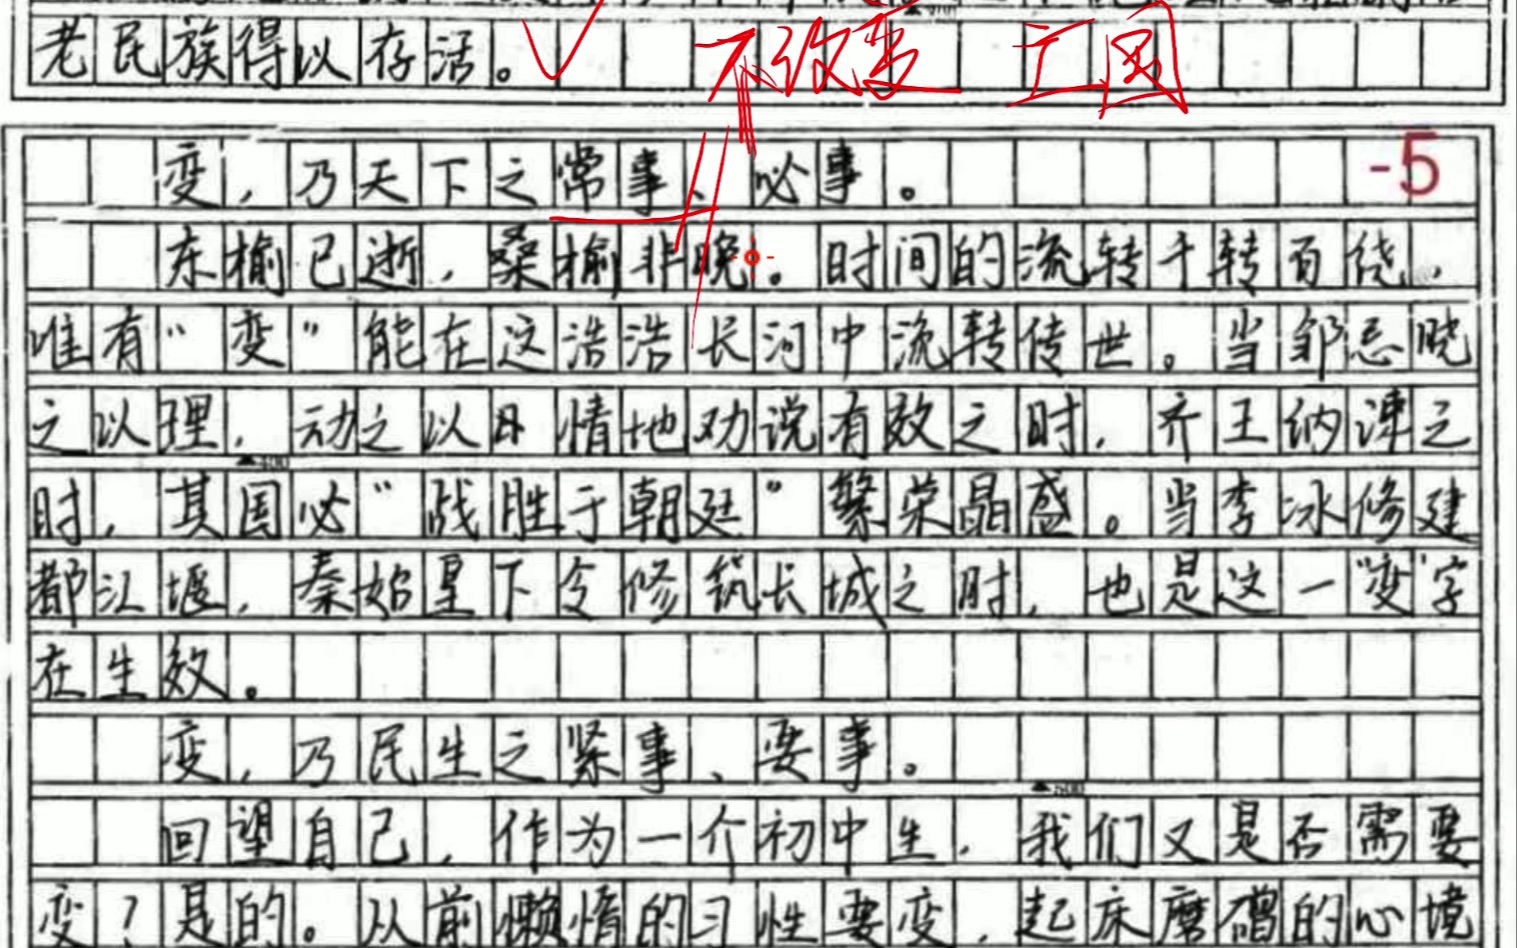 老民族得以存活。
不改变 亡国
-5
变,乃天下之常事、必事。
东榆已逝,桑榆非晚。时间的流转千转百绕,
唯有“变”能在这浩浩长河中流转传世。当邹忌晓
之以理,动之以日情地劝说有效之时,齐王纳谏之
时,其国必“战胜于朝廷”繁荣晶盛。当李冰修建
都江堰,秦始皇下令修筑长城之时,也是这一“变”字
在生效。
变,乃民生之紧事、要事。
回望自己,作为一个初中生,我们又是否需要
变?是的。从前懒惰的习性要变,起床磨磳的心境